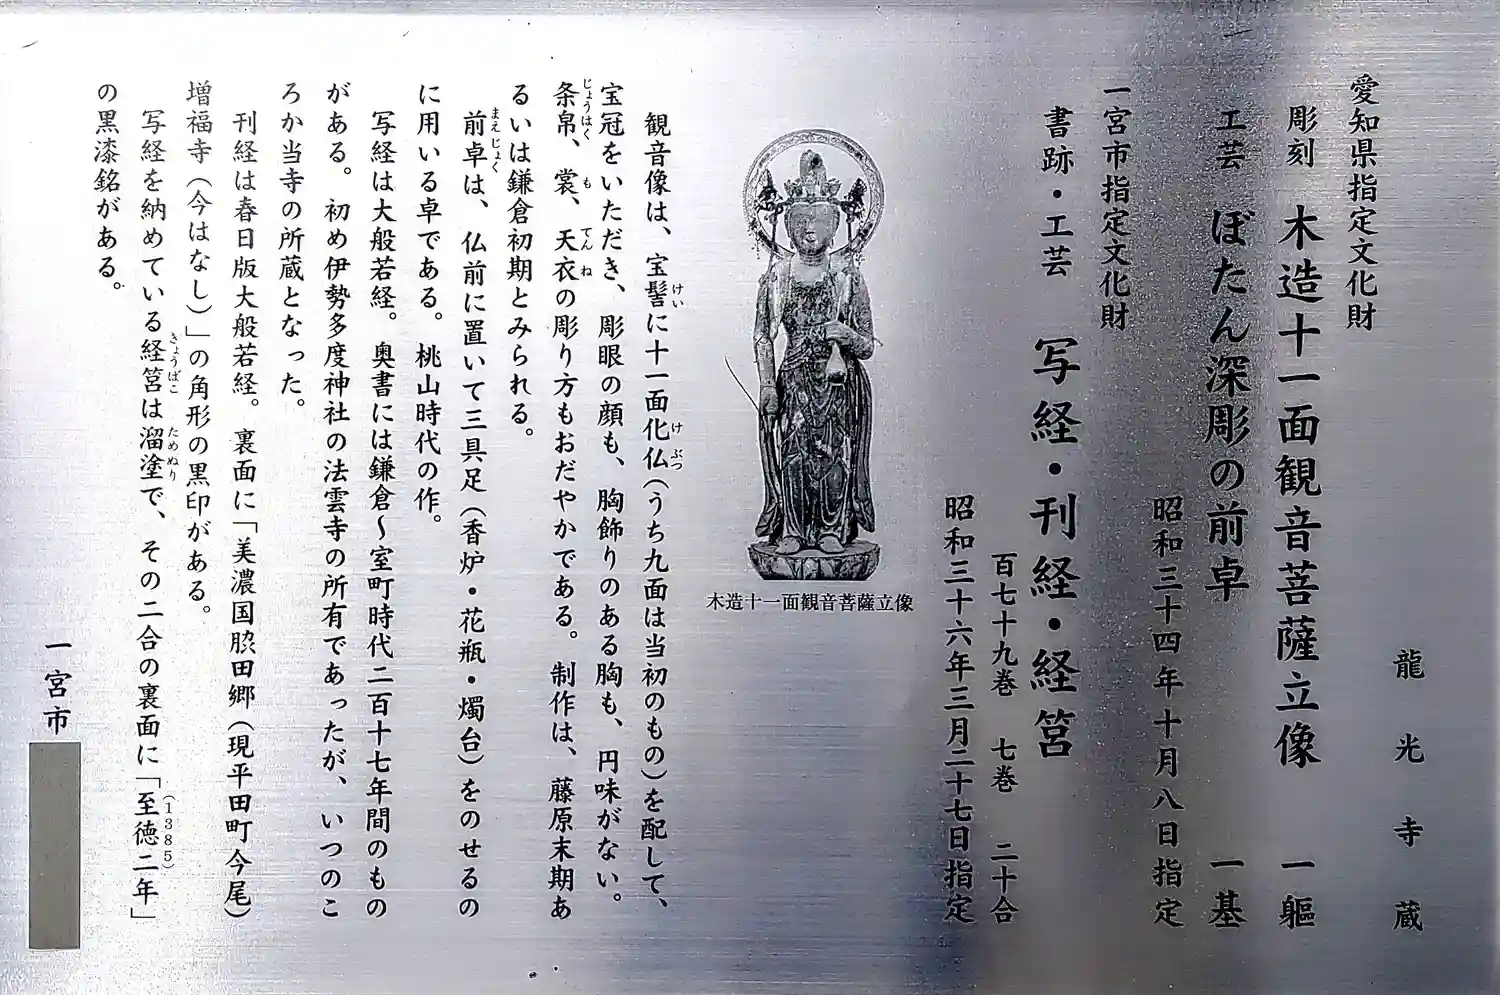 龍光寺蔵
愛知県指定文化財
彫刻 木造十一面観音菩薩立像 一軀
工芸 ぼたん深彫の前卓 一基
昭和三十四年十月八日指定
一宮市指定文化財
書跡・工芸 写経・刊経・経筥
百七十九巻 七巻 二十合
昭和三十六年三月二十七日指定
木造十一面観音菩薩立像
観音像は、宝髻に十一面化仏(うち九面は当初のもの)を配して、
宝冠をいただき、彫眼の顔も、胸飾りのある胸も、円味がない。
条帛、裳、天衣の彫り方もおだやかである。制作は、藤原末期あ
るいは鎌倉初期とみられる。
前卓は、仏前に置いて三具足(香炉・花瓶・燭台)をのせるの
に用いる卓である。桃山時代の作。
写経は大般若経。奥書には鎌倉〜室町時代二百十七年間のもの
がある。初め伊勢多度神社の法雲寺の所有であったが、いつのこ
ろか当寺の所蔵となった。
刊経は春日版大般若経。裏面に「美濃国脵田郷(現平田町今尾)
増福寺(今はなし)」の角形の黒印がある。
写経を納めている経筥は溜塗で、その二合の裏面に「至徳二年」(1385)
の黒漆銘がある。
一宮市